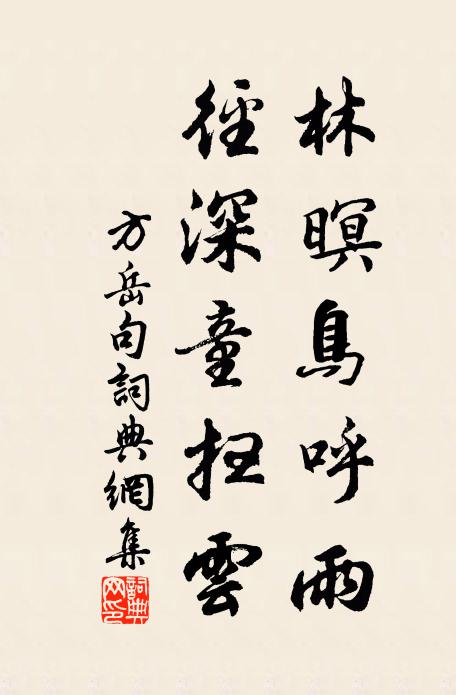 林暝鳥呼雨
徑深童掃雲
方岳句詞典網集
詞典
网印